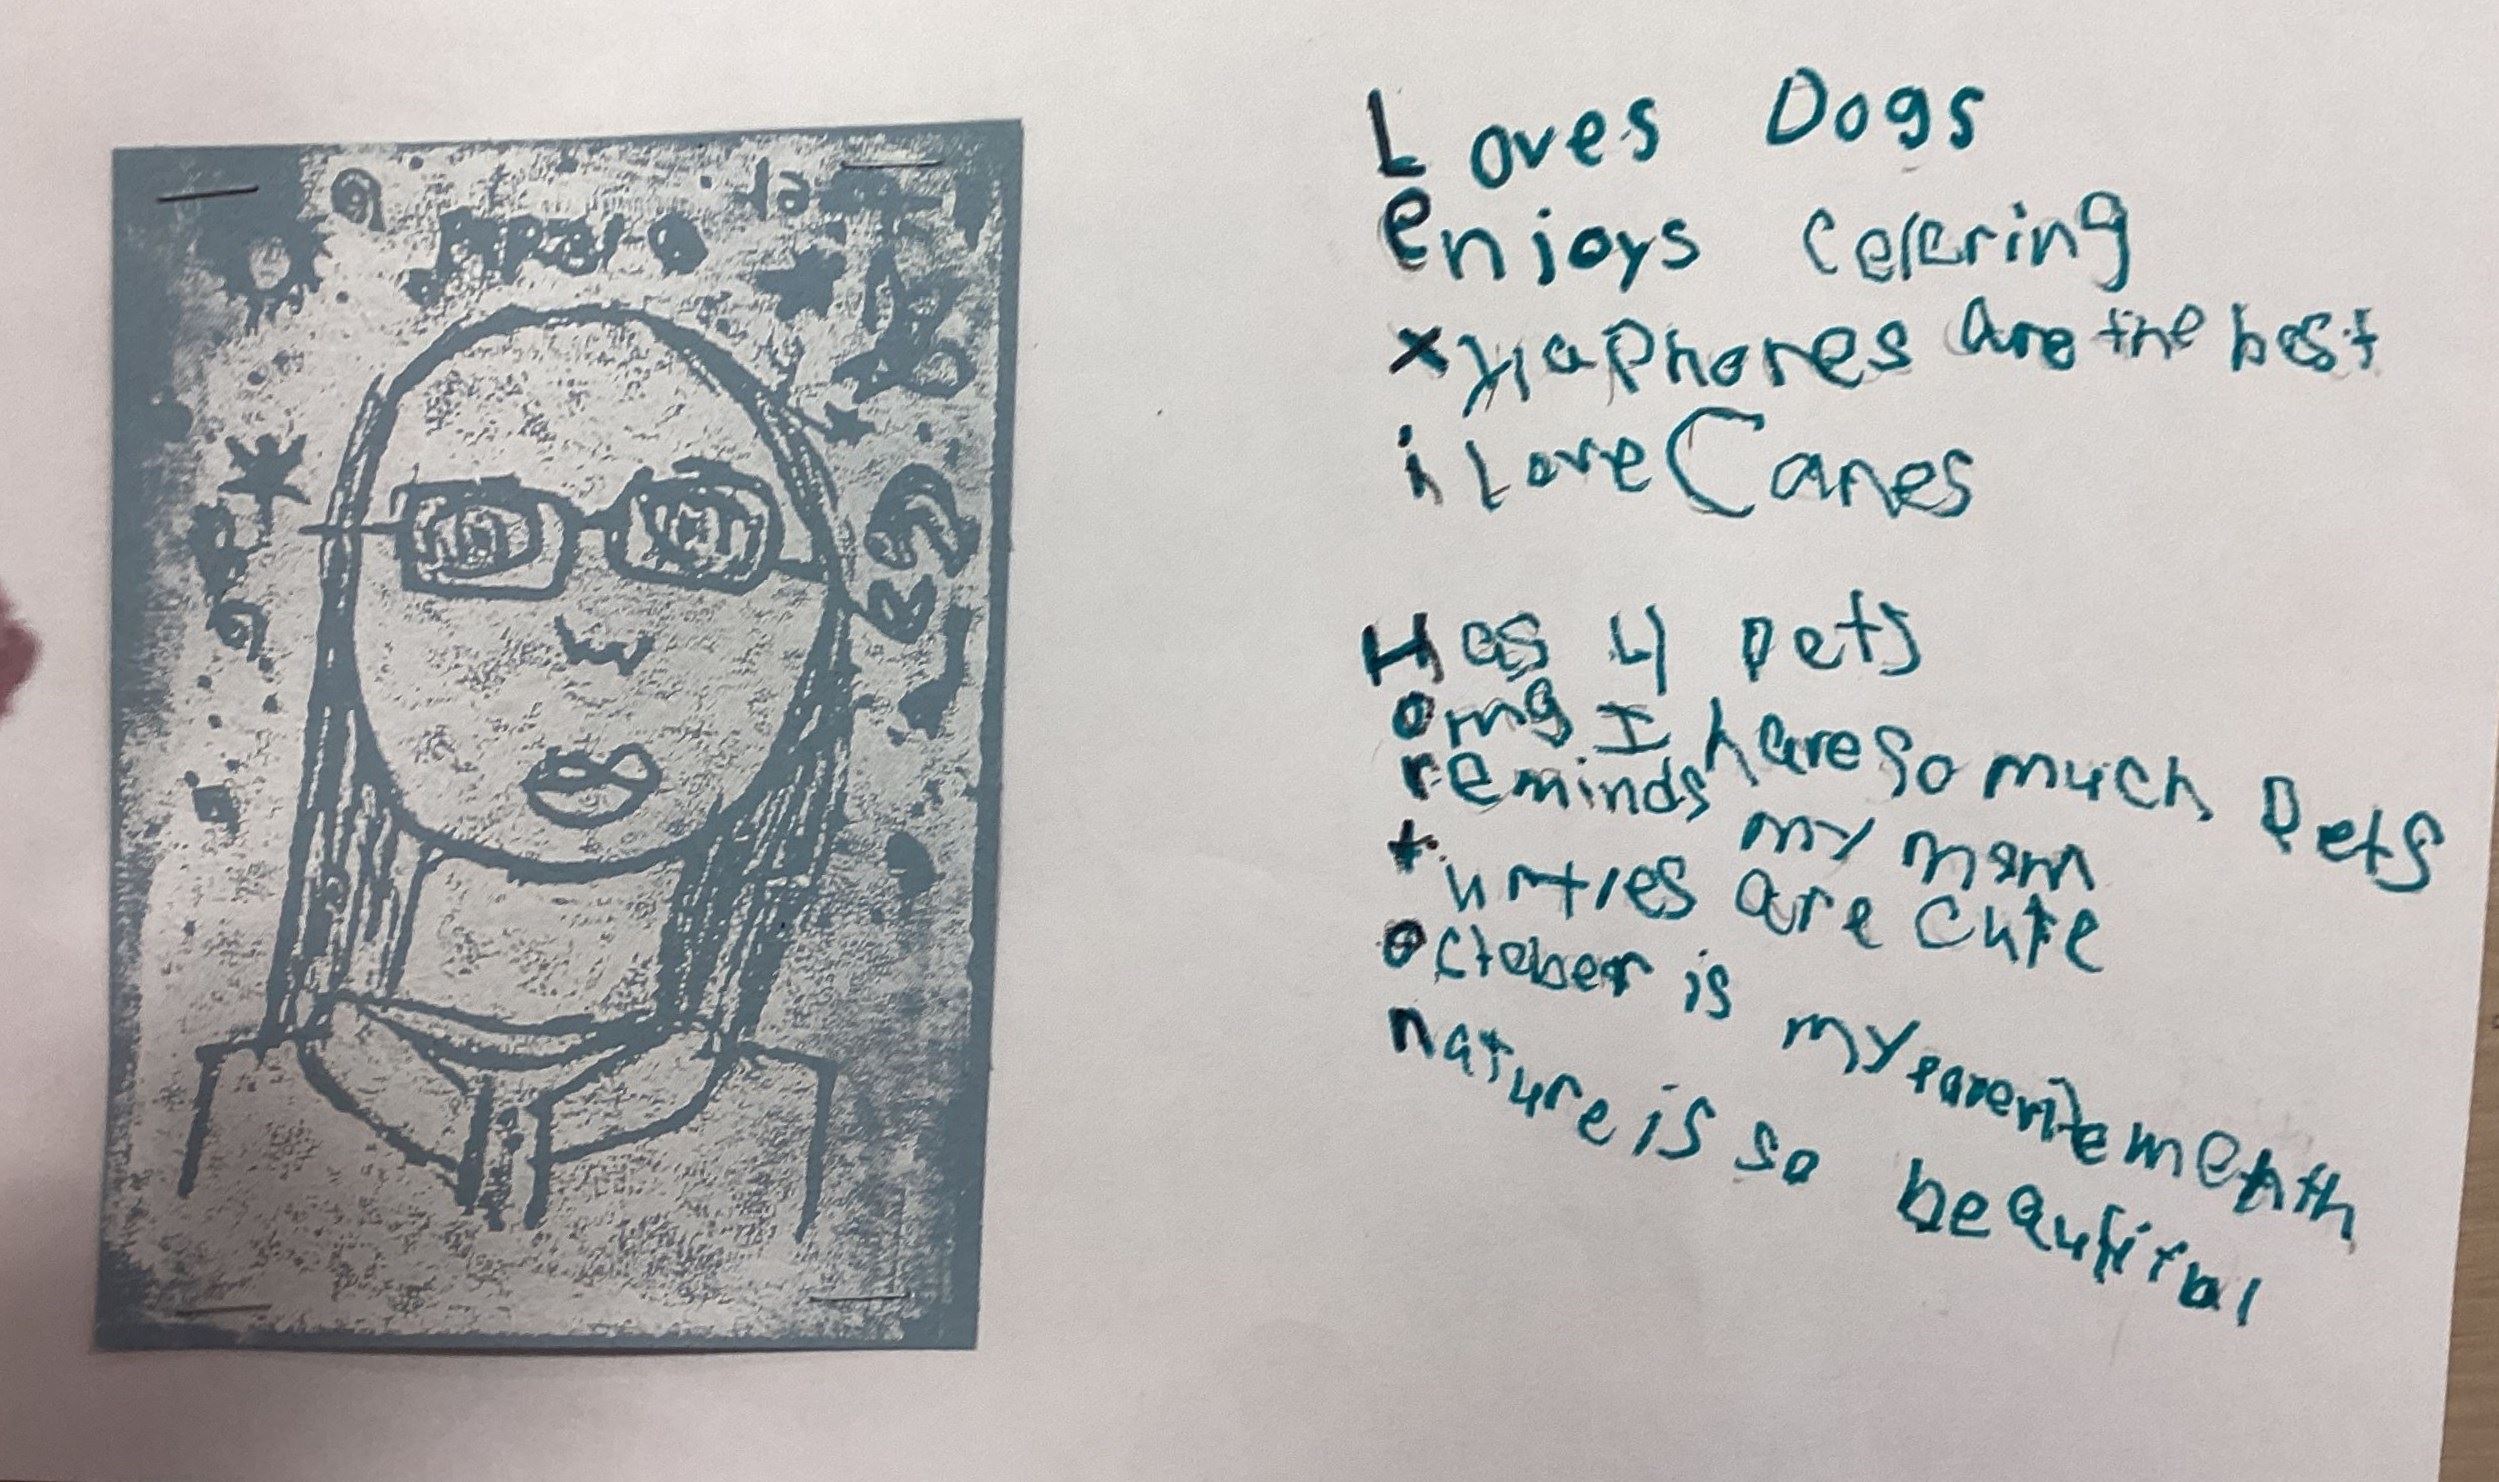 Loves Dogs
enjoys celering
xylaphones are the best
i Love Canes
Has 4 pets
omg I have so much pets
reminds my mom
turtles are cute
october is my favorite month
nature is so beautifual